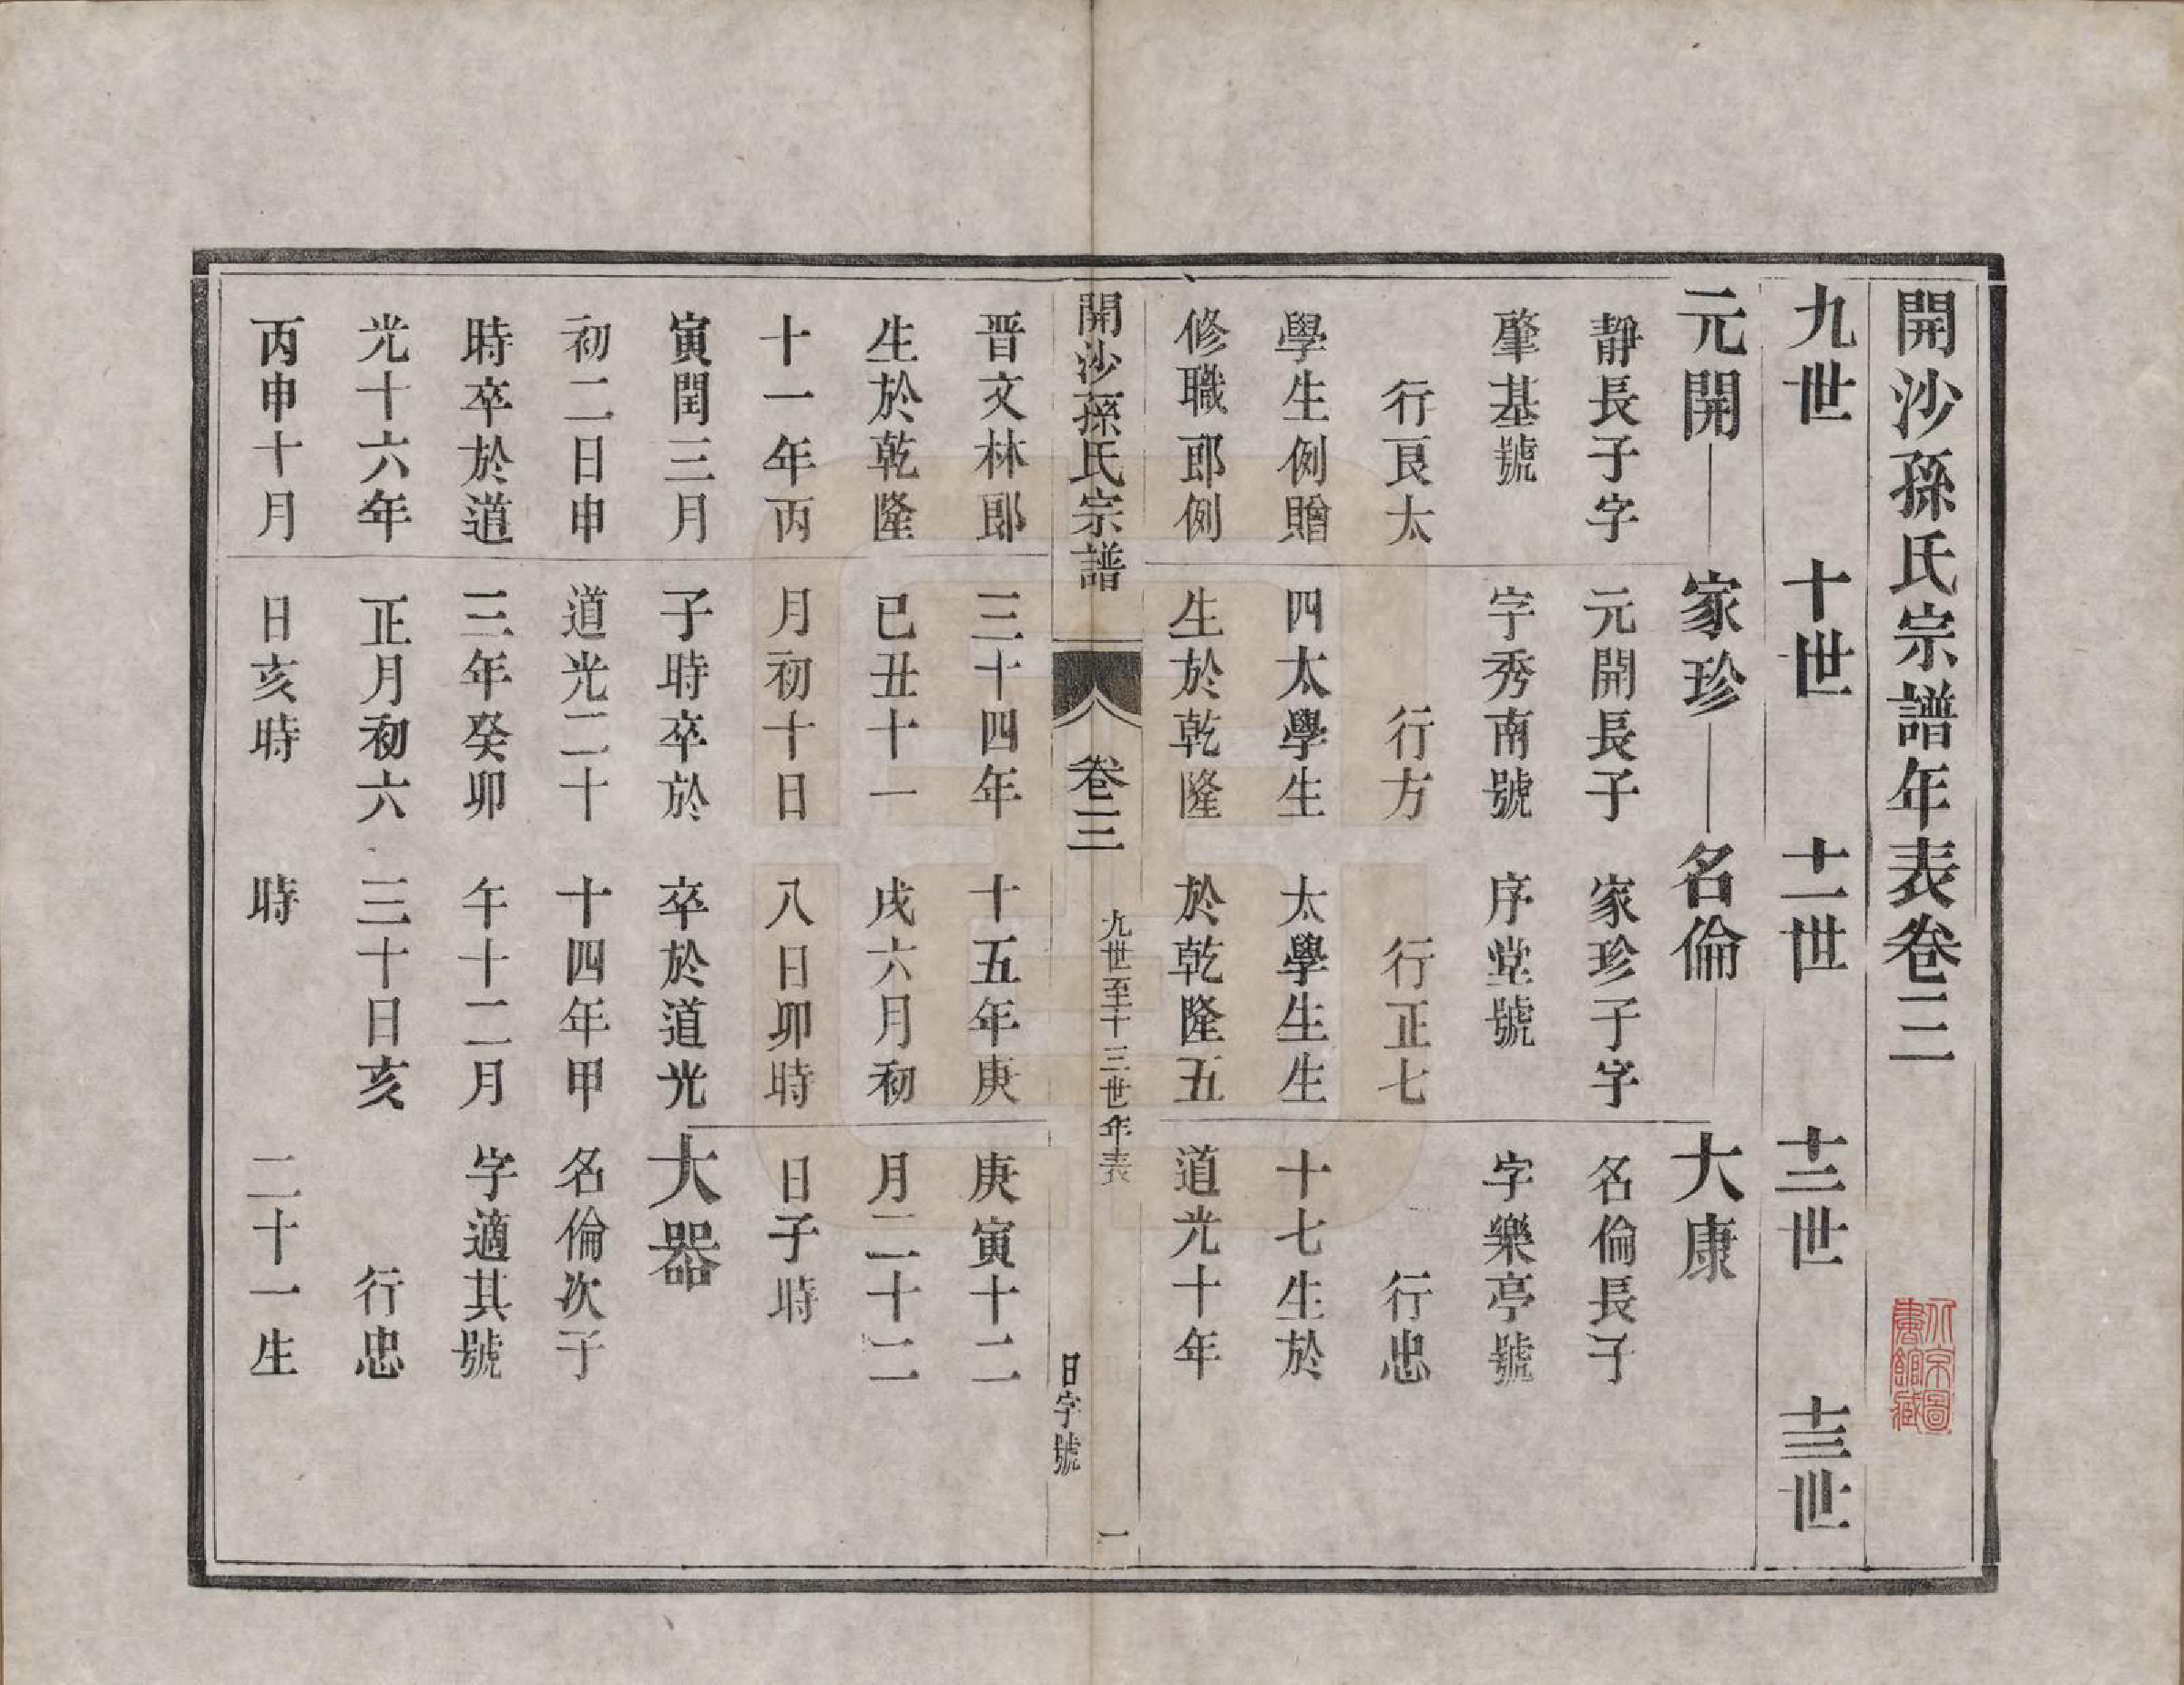 開沙孫氏宗譜年表卷三
圖書館藏
九世 十世 十一世 十二世 十三世
元開 家珍 名倫 大康
靜長子字 元開長子 家珍子字 名倫長子
肇基號 字秀南號 序堂號 字樂亭號
行艮太 行方 行正七 行忠
學生例贈 四太學生 太學生生 十七生於
修職郎例 生於乾隆 於乾隆五 道光十年
開沙孫氏宗譜 卷三 九世至十三世年表 日字號 一
晋文林郎 三十四年 十五年庚 庚寅十二
生於乾隆 已丑十一 戌六月初 月二十二
十一年丙 月初十日 八日卯時 日子時
寅閏三月 子時卒於 卒於道光 大器
初二日申 道光二十 十四年甲 名倫次子
時卒於道 三年癸卯 午十二月 字適其號
光十六年 正月初六 三十日亥 行忠
丙申十月 日亥時 時 二十一生